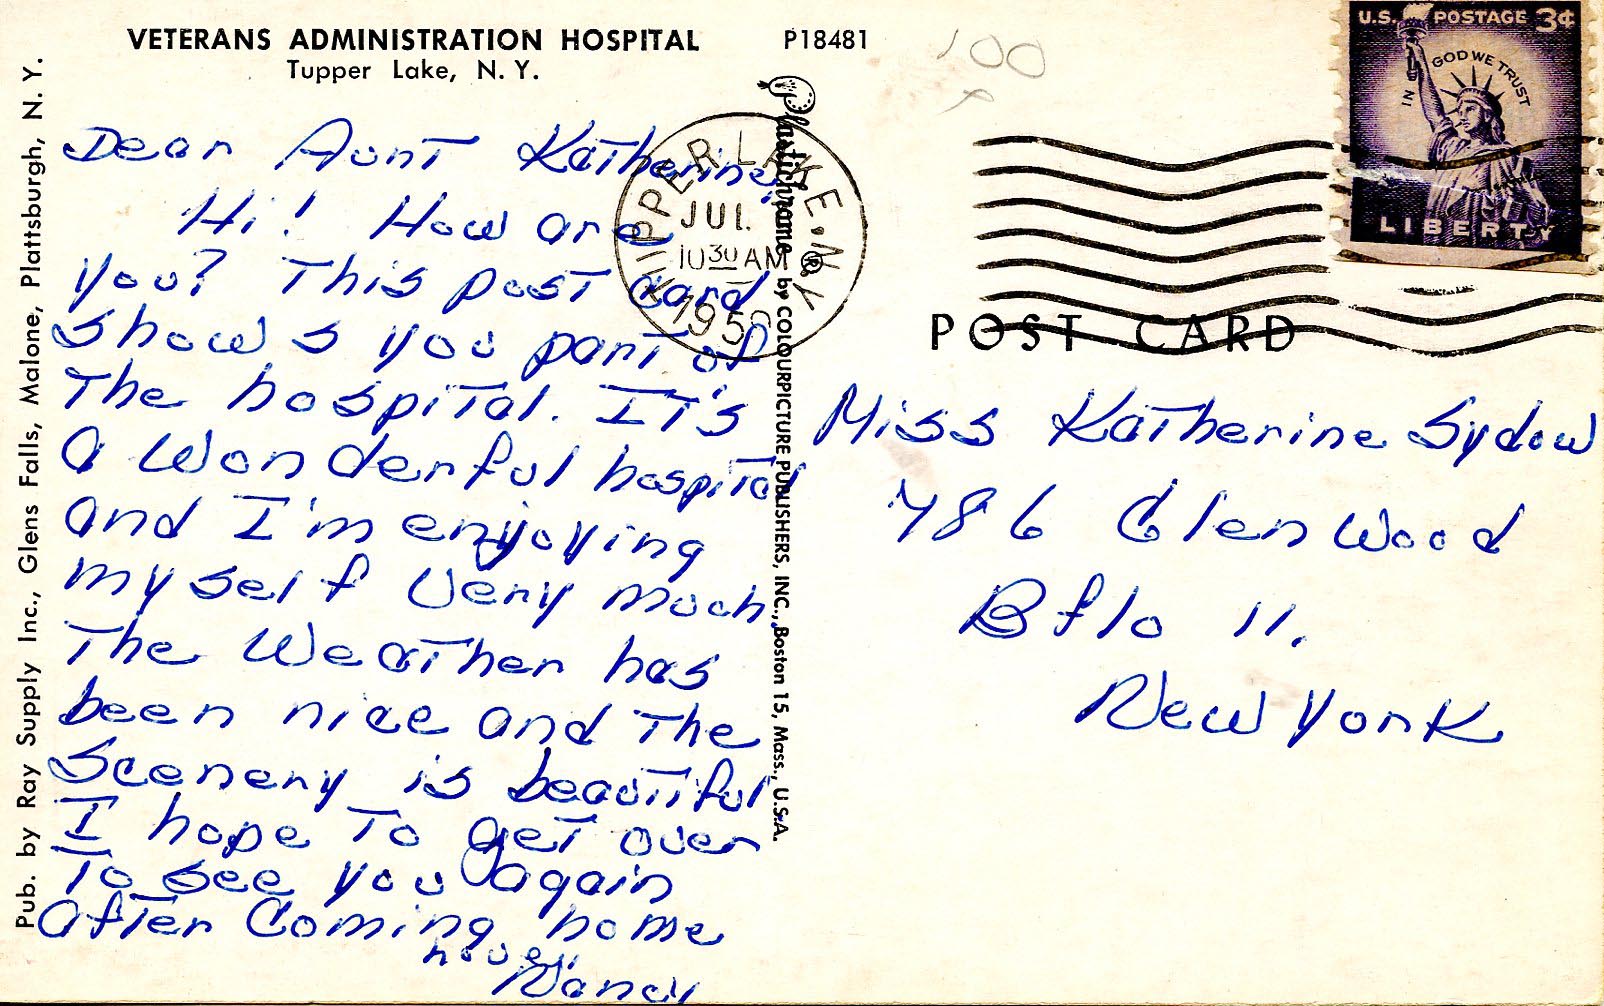 VETERANS ADMINISTRATION HOSPITAL
Tupper Lake, N. Y.
P18481
100
Dear Aunt Katherine,
Hi! How are
you? This post card
shows you part of
the hospital. It's
a wonderful hospital
and I'm enjoying
myself very much.
The weather has
been nice and the
scenery is beautiful
I hope to get over
to see you again
after coming home
Nancy
Pub. by Ray Supply Inc., Glens Falls, Malone, Plattsburgh, N. Y.
Plastichrome ® by COLOURPICTURE PUBLISHERS, INC., Boston 15, Mass., U.S.A.
TUPPER LAKE. N.Y.
JUL
10 30 AM
195
U.S. POSTAGE 3¢
IN GOD WE TRUST
LIBERTY
POST CARD
Miss Katherine Sydow
786 Glenwood
Bflo 11.
New York